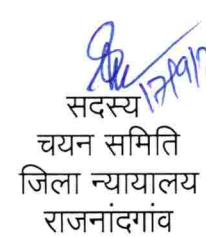 सदस्य
चयन समिति
जिला न्यायालय
राजनांदगांव